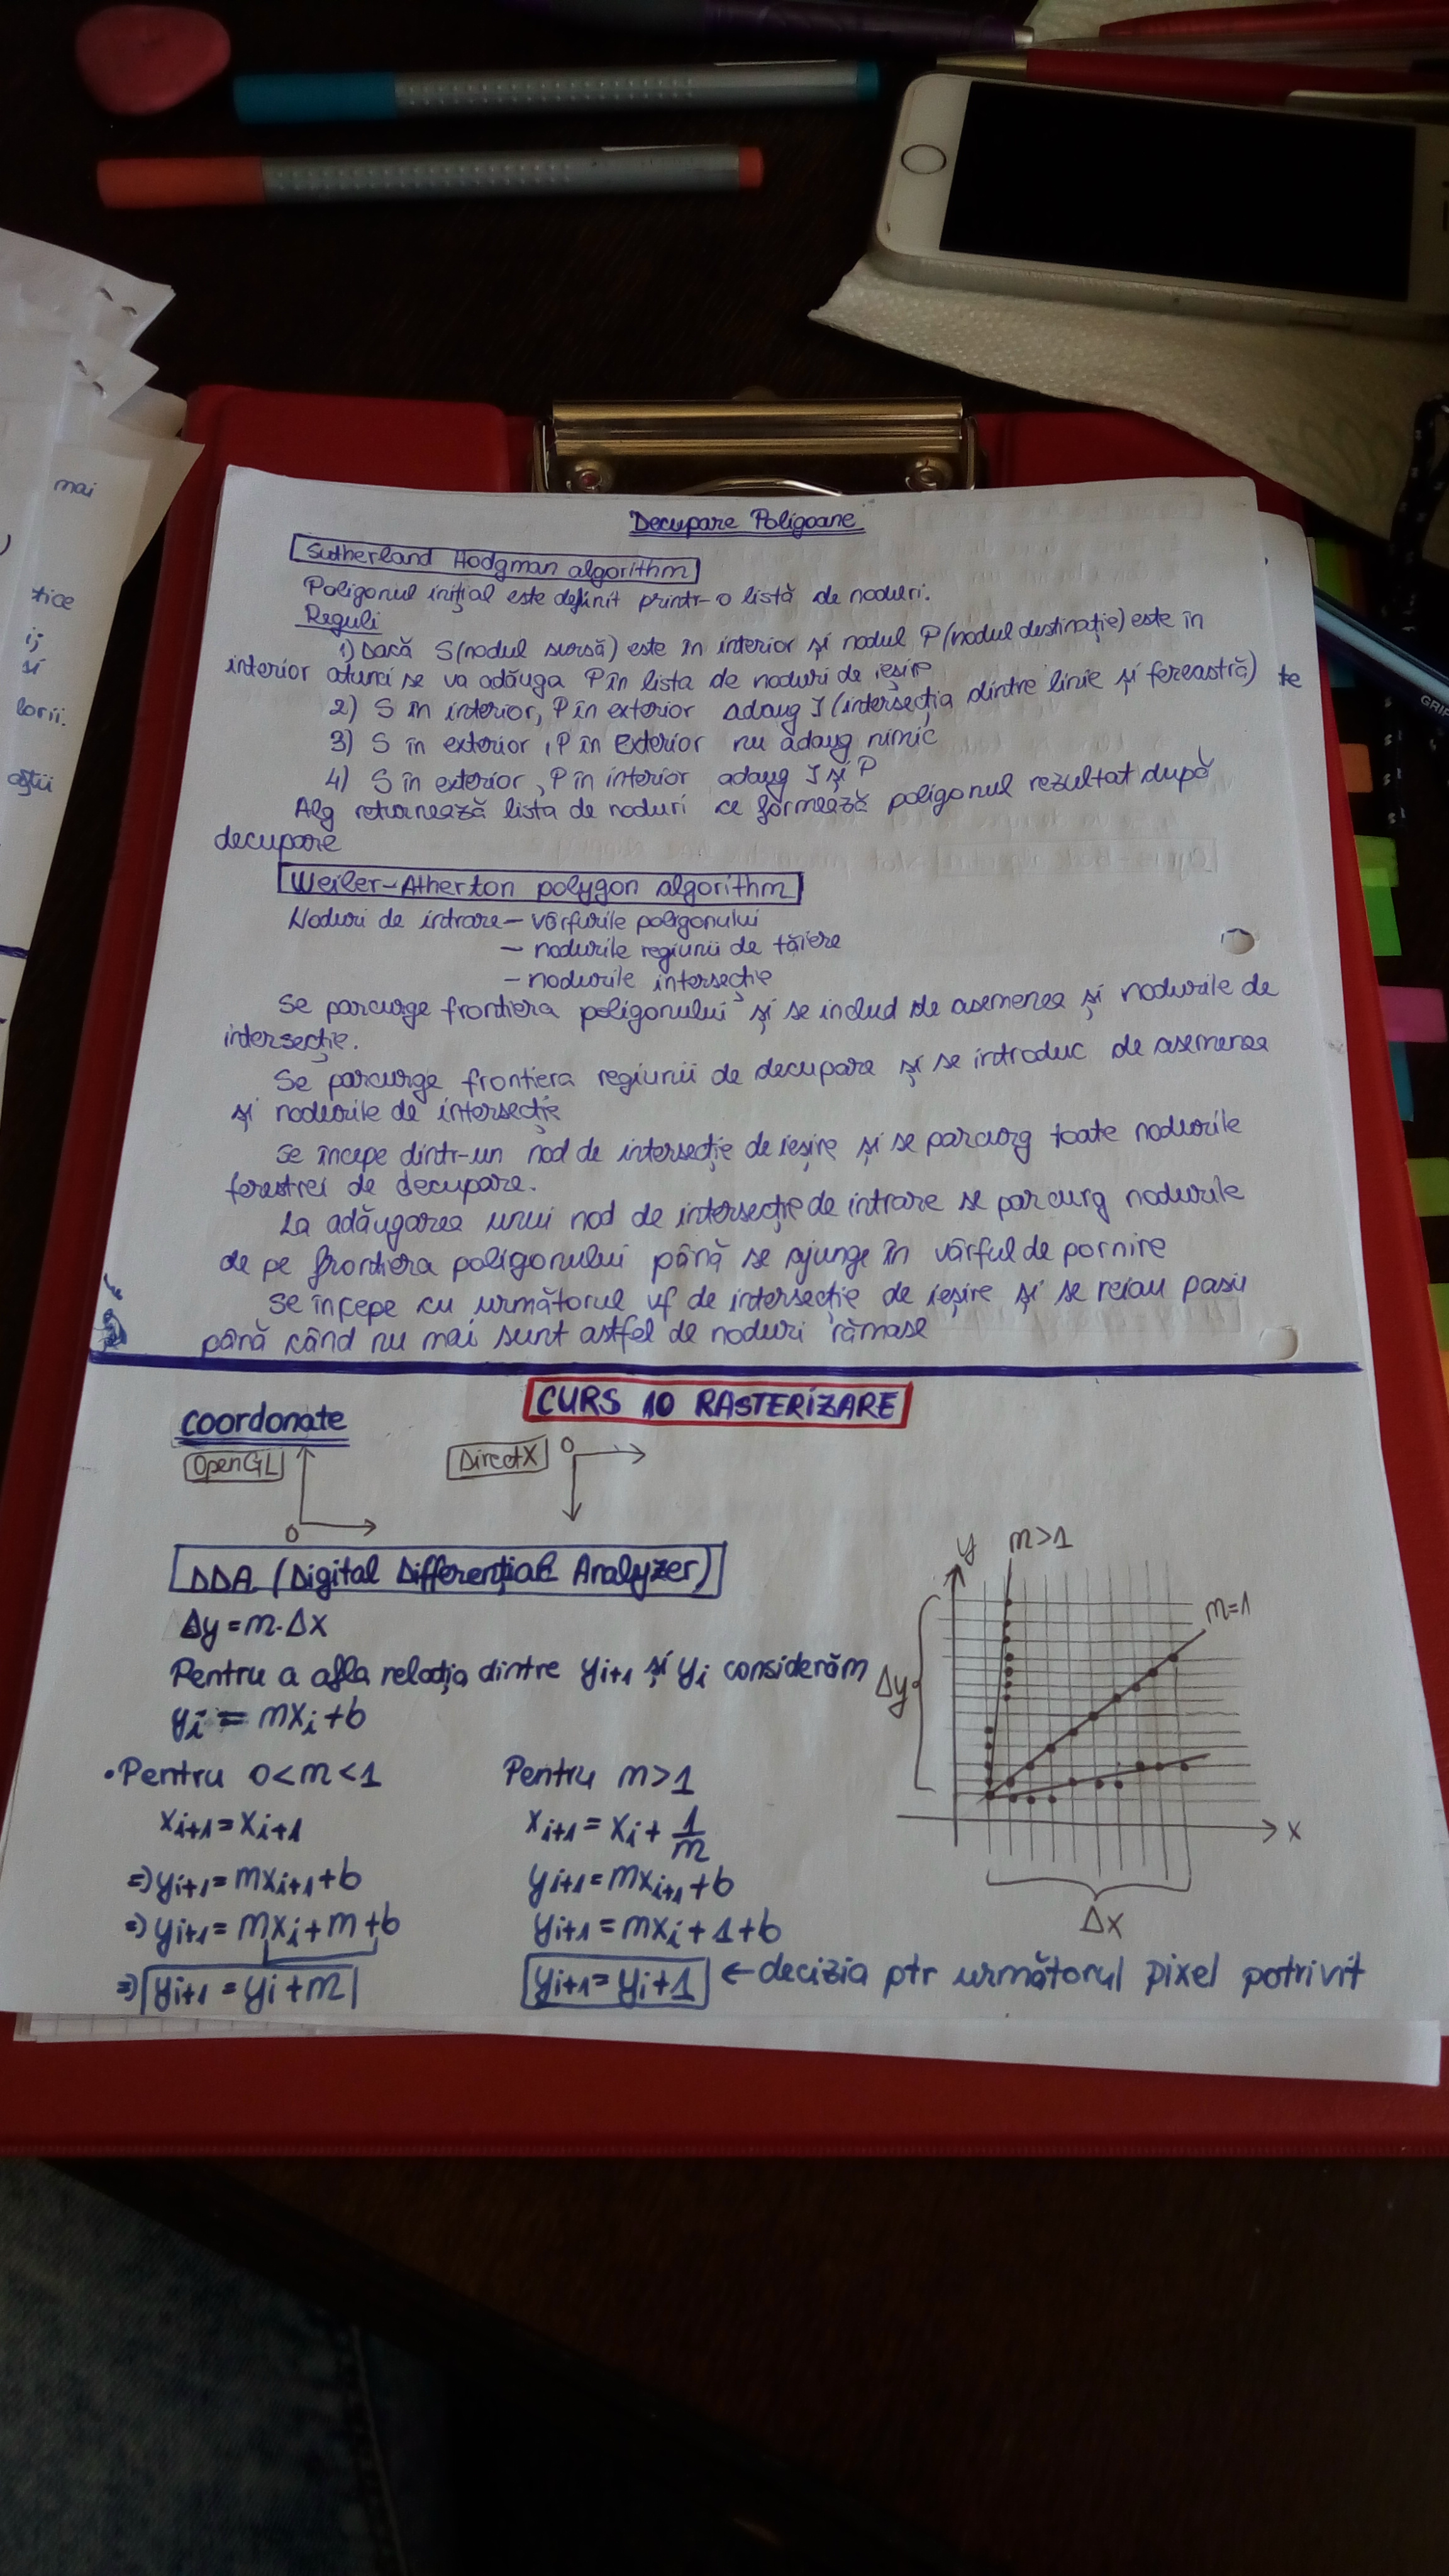 mai
tice
ij
si
lorii.
aștii
Decupare Poligoane
Sutherland Hodgman algorithm
Poligonul inițial este definit printr-o listă de noduri.
Reguli
1) Dacă S(nodul sursă) este în interior și nodul P(nodul destinație) este în
interior atunci se va adăuga P în lista de noduri de ieșire
2) S în interior, P în exterior adaug I (intersecția dintre linie și fereastră) te
3) S în exterior, P în Exterior nu adaug nimic
4) S în exterior, P în interior adaug I și P
Alg returnează lista de noduri ce formează poligonul rezultat după
decupare
Weiler-Atherton polygon algorithm
Noduri de intrare - vârfurile poligonului
- nodurile regiunii de tăiere
- nodurile intersecție
Se parcurge frontiera poligonului și se includ de asemenea și nodurile de
intersecție.
Se parcurge frontiera regiunii de decupare și se introduc de asemenea
și nodurile de intersecție
Se începe dintr-un nod de intersecție de ieșire și se parcurg toate nodurile
ferestrei de decupare.
La adăugarea unui nod de intersecție de intrare se parcurg nodurile
de pe frontiera poligonului până se ajunge în vârful de pornire
Se începe cu următorul vf de intersecție de ieșire și se reiau pașii
până când nu mai sunt astfel de noduri rămase
CURS 10 RASTERIZARE
coordonate
OpenGL
0
DirectX
0
DDA (Digital Differențial Analyzer)
Δy = m·Δx
Pentru a afla relația dintre yi+1 și yi considerăm
yi = mxi+b
• Pentru 0<m<1
xi+1 = xi+1
=> yi+1 = mxi+1+b
=> yi+1 = mxi+m+b
=> yi+1 = yi+m
Pentru m>1
xi+1 = xi + 1/m
yi+1 = mxi+1+b
yi+1 = mxi+1+b
yi+1 = yi+1 ← decizia ptr următorul pixel potrivit
y
m>1
m=1
Δy
x
Δx
GRIP